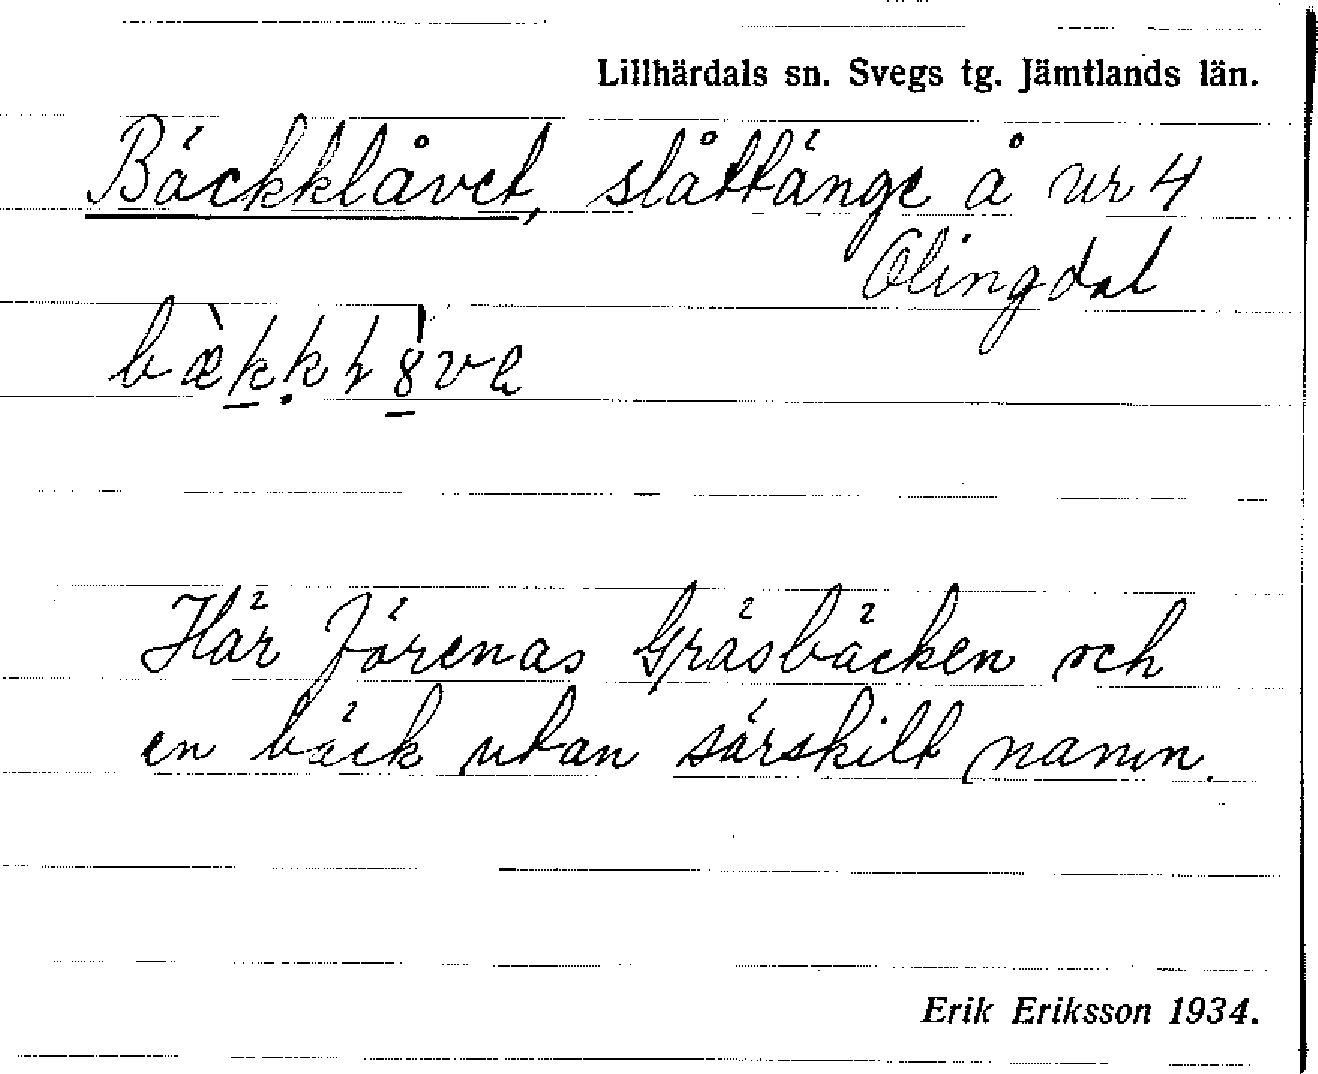 Lillhärdals sn. Svegs tg. Jämtlands län.
Bäckklåvet, slåttänge å nr 4
Olingdal
bæ̀kkɫ8va
Här förenas Gräsbäcken och
en bäck utan särskilt namn.
Erik Eriksson 1934.